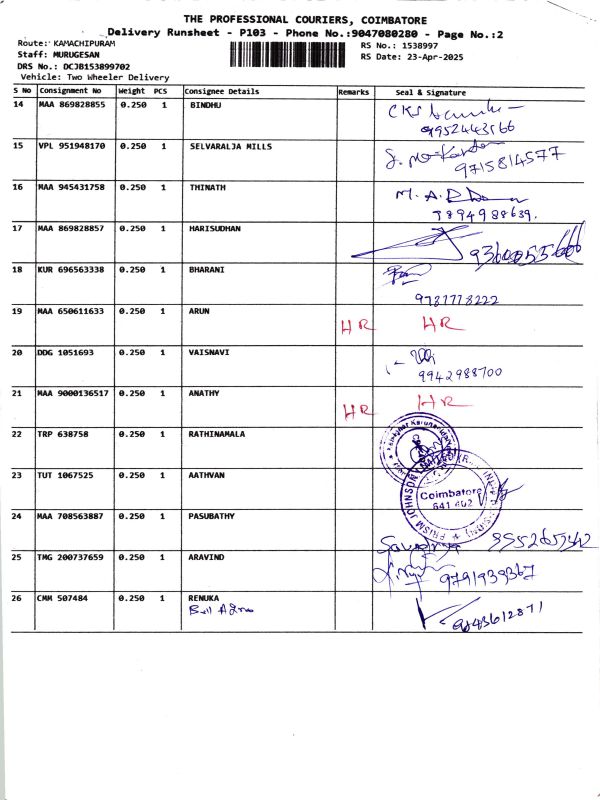 THE PROFESSIONAL COURIERS, COIMBATORE
Delivery Runsheet - P103 - Phone No.:9047080280 - Page No.:2
Route: KAMACHIPURAM
RS No.: 1538997
Staff: MURUGESAN
RS Date: 23-Apr-2025
DRS No.: DCJB153899702
Vehicle: Two Wheeler Delivery
S No Consignment No Weight PCS Consignee Details Remarks Seal & Signature
14 MAA 869828855 0.250 1 BINDHU
9952443566
15 VPL 951948170 0.250 1 SELVARALJA MILLS
9715814577
16 MAA 945431758 0.250 1 THINATH
7894988639.
17 MAA 869828857 0.250 1 HARISUDHAN
18 KUR 696563338 0.250 1 BHARANI
9787778222
19 MAA 650611633 0.250 1 ARUN HR HR
20 DDG 1051693 0.250 1 VAISNAVI
9942988700
21 MAA 9000136517 0.250 1 ANATHY HR HR
22 TRP 638758 0.250 1 RATHINAMALA
23 TUT 1067525 0.250 1 AATHVAN
PRISM JOHNSON LIMITED
Coimbatore
641 402
24 MAA 708563887 0.250 1 PASUBATHY
25 TMG 200737659 0.250 1 ARAVIND
9791939367
26 CMM 507484 0.250 1 RENUKA
9843612871